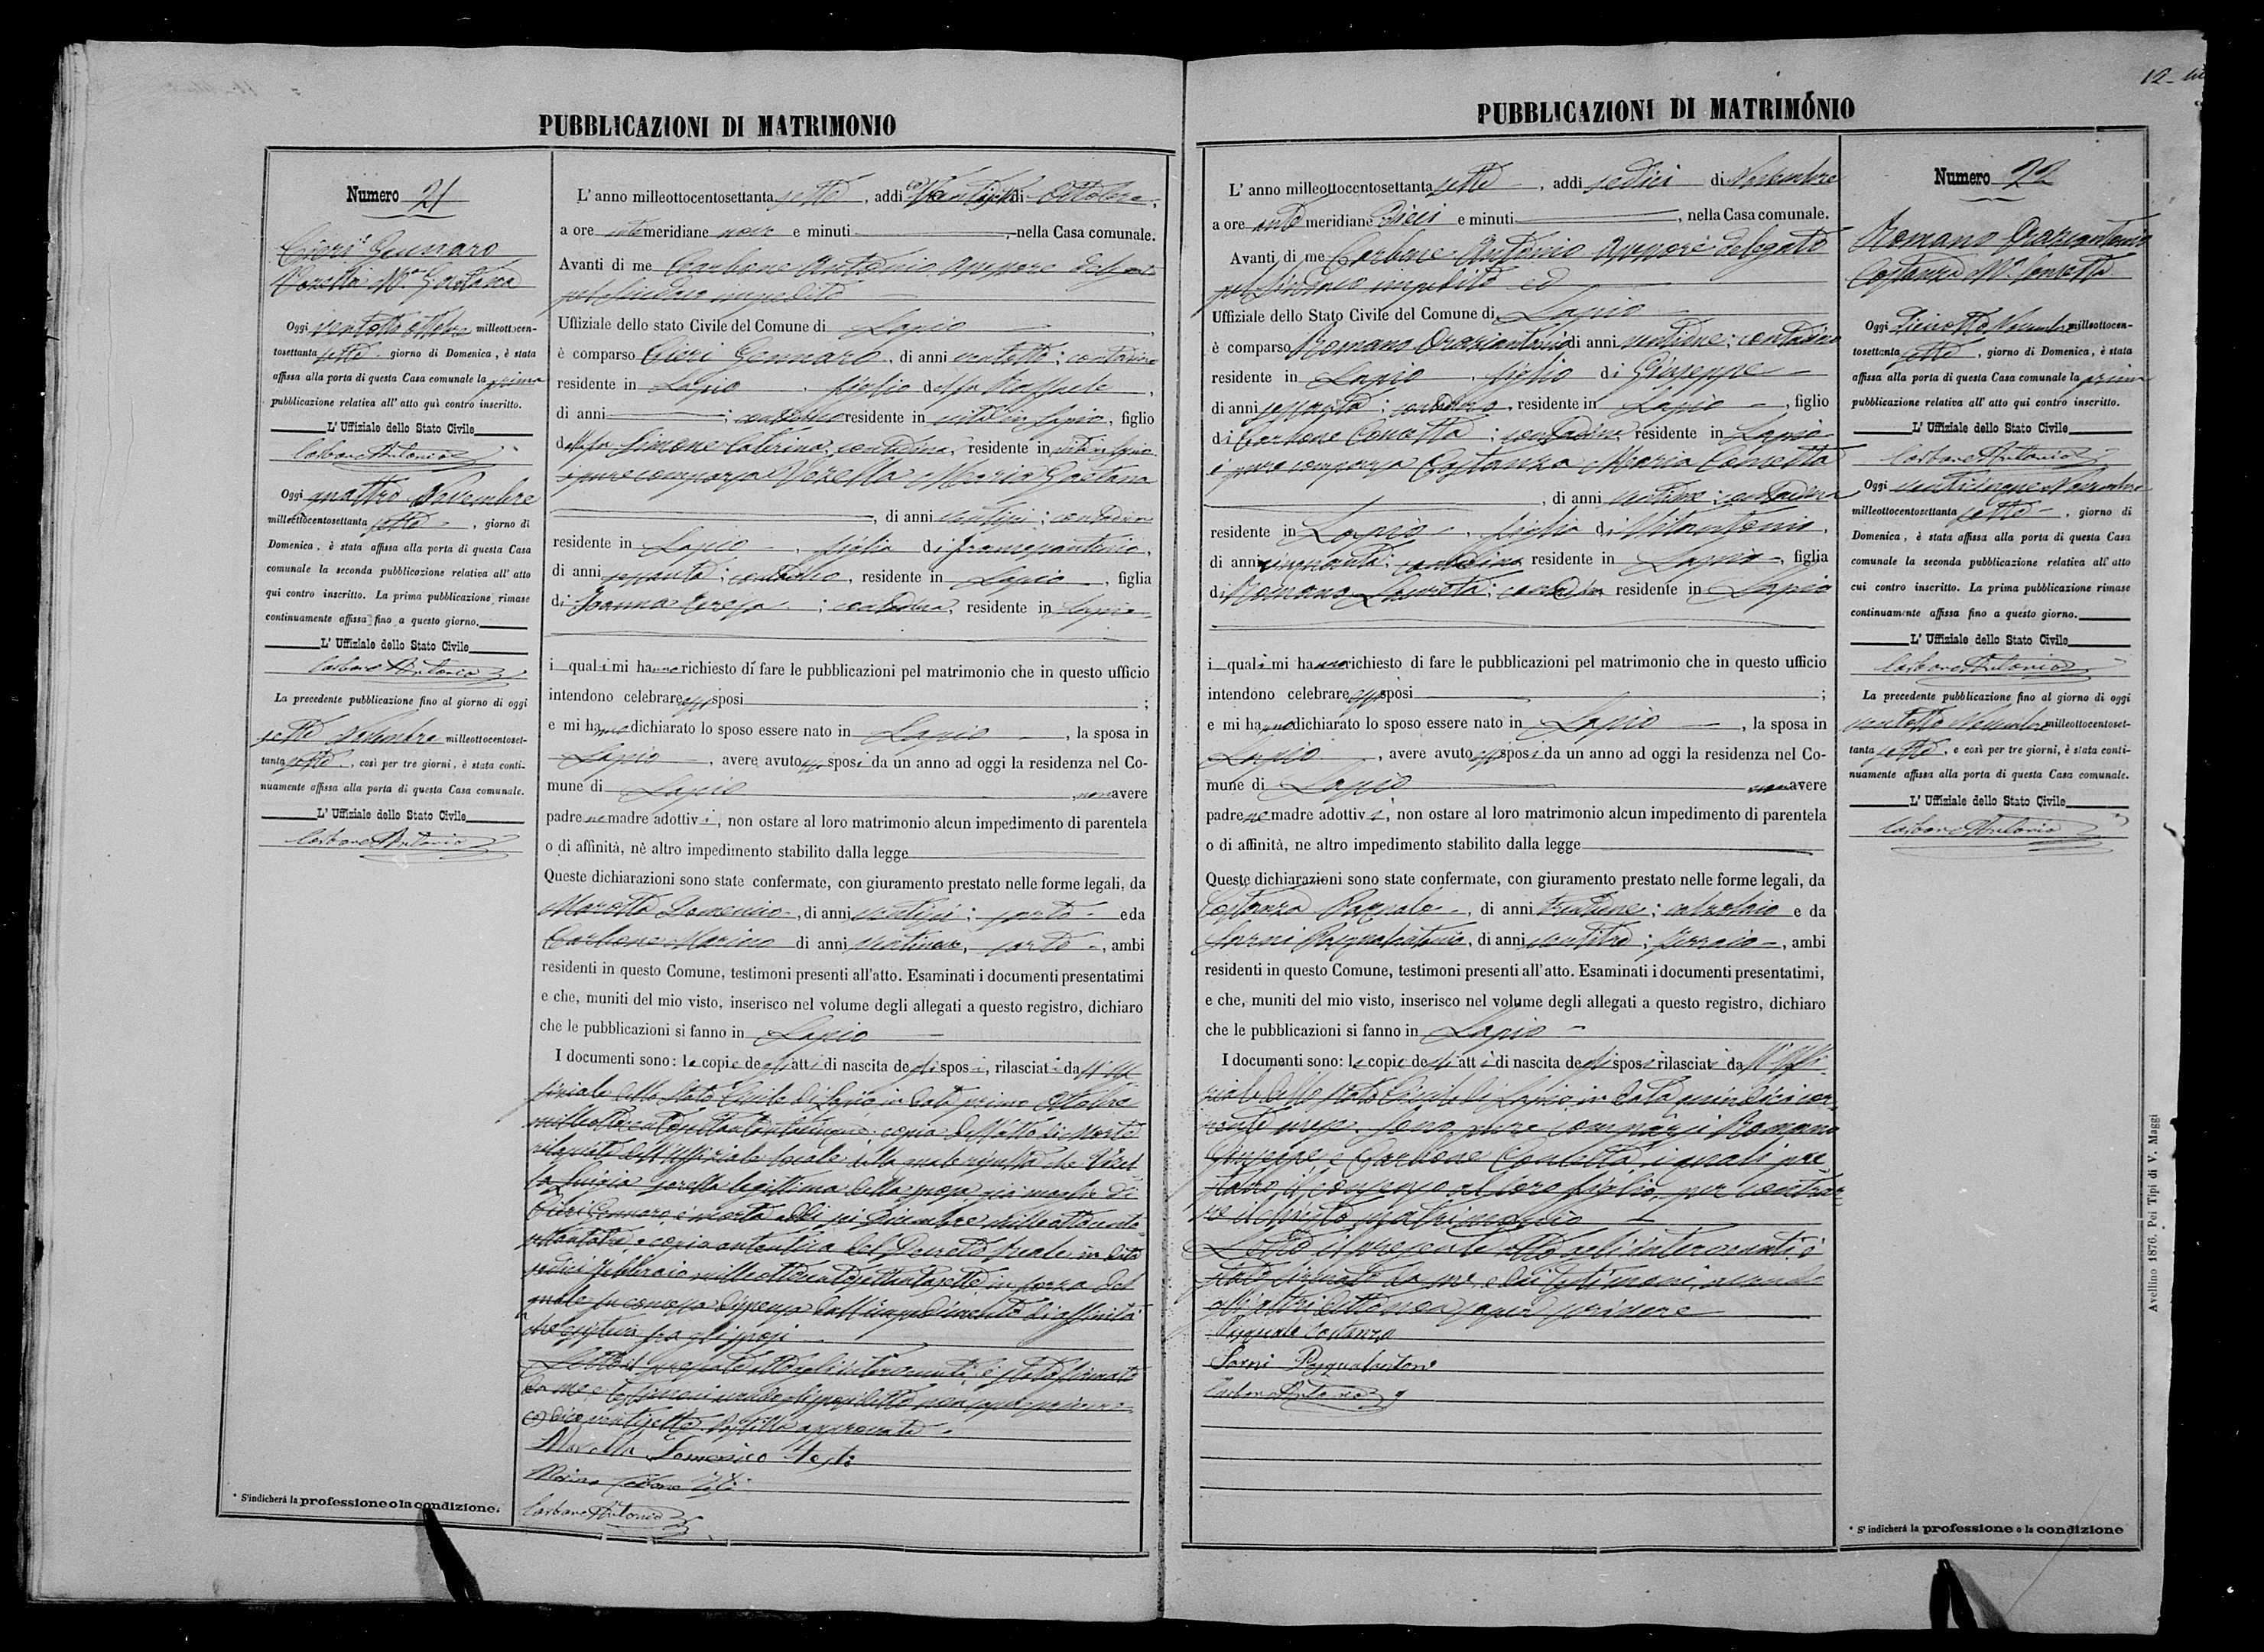 PUBBLICAZIONI DI MATRIMONIO
Numero 21
Cieri Gennaro
Vozella Mª Gaetana
Oggi ventotto ottobre milleottocen-
tosettanta sette giorno di Domenica, è stata
affissa alla porta di questa Casa comunale la prima
pubblicazione relativa all' atto quì contro inscritto.
L' Uffiziale dello Stato Civile
Carbone Antonio
Oggi quattro Novembre
milleottocentosettanta sette, giorno di
Domenica, è stata affissa alla porta di questa Casa
comunale la seconda pubblicazione relativa all' atto
qui contro inscritto. La prima pubblicazione rimase
continuamente affissa fino a questo giorno.
L' Uffiziale dello Stato Civile
Carbone Antonio
La precedente pubblicazione fino al giorno di oggi
sette Novembre milleottocentoset-
tanta sette, così per tre giorni, è stata conti-
nuamente affissa alla porta di questa Casa comunale.
L' Uffiziale dello Stato Civile
Carbone Antonio
* S'indicherà la professione o la condizione.
L' anno milleottocentosettanta sette, addì di Ottobre,
a ore antemeridiane nove e minuti , nella Casa comunale.
Avanti di me Carbone Antonio Assessore delegato
pel Sindaco impedito
Uffiziale dello stato Civile del Comune di Lapio,
è comparso Cieri Gennaro, di anni ventotto; contadino
residente in Lapio, figlio del fu Raffaele,
di anni ; residente in vita in Lapio, figlio
della fu Simone Caterina, contadina, residente in vita in Lapio
è pure comparsa Vozella Maria Gaetana
, di anni ventisei; contadina
residente in Lapio, figlia di Francescantonio,
di anni sessanta; contadino, residente in Lapio, figlia
di Teresa; contadina, residente in Lapio
i quali mi hanno richiesto di fare le pubblicazioni pel matrimonio che in questo ufficio
intendono celebrare essi sposi ;
e mi hanno dichiarato lo sposo essere nato in Lapio, la sposa in
Lapio, avere avuto essi sposi da un anno ad oggi la residenza nel Co-
mune di Lapio non avere
padre ne madre adottivi, non ostare al loro matrimonio alcun impedimento di parentela
o di affinità, nè altro impedimento stabilito dalla legge
Queste dichiarazioni sono state confermate, con giuramento prestato nelle forme legali, da
Marotta Domenico, di anni ventisei; sarto e da
Carbone Marino di anni ventinove, sarto, ambi
residenti in questo Comune, testimoni presenti all'atto. Esaminati i documenti presentatimi
e che, muniti del mio visto, inserisco nel volume degli allegati a questo registro, dichiaro
che le pubblicazioni si fanno in Lapio
I documenti sono: le copie degli atti di nascita degli sposi, rilasciati da ll'Uf
fiziale dello Stato Civile di Lapio in data primo Ottobre
milleottocentosettantacinque; copia dell'atto di morte
rilasciato dall'Uffiziale locale dalla quale risulta che Vozel
la sorella legittima della sposa già moglie di
Cieri Gennaro, è morta addì sei Dicembre milleottocento
settanta , e copia autentica del Decreto Reale in data
sedici Febbraio milleottocentosettantasette in forza del
quale fu concessa dispensa dall'impedimento di affinità
che esisteva fra gli sposi
Letto il presente atto agl'intervenuti, è stato firmato
da me e testimoni avendo gli sposi detto non saper scrivere
dico ventisette. Postilla approvata.
Marotta Domenico Testi
Marino Carbone Testi
Carbone Antonio
PUBBLICAZIONI DI MATRIMONIO
12
L' anno milleottocentosettanta sette, addì sedici di Novembre
a ore antemeridiane dieci e minuti , nella Casa comunale.
Avanti di me Carbone Antonio Assessore delegato
pel Sindaco impedito ed
Uffiziale dello Stato Civile del Comune di Lapio
è comparso Romano Orazioantonio di anni ventidue; contadino
residente in Lapio, figlio di Giuseppe
di anni sessanta; contadino, residente in Lapio, figlio
di Carbone Concetta; contadina, residente in Lapio
è pure comparsa Costanza Maria Concetta
, di anni ; contadina
residente in Lapio, figlia di Vitantonio,
di anni cinquanta; contadino residente in Lapio, figlia
di Romano Laureta; contadina residente in Lapio
i quali mi hanno richiesto di fare le pubblicazioni pel matrimonio che in questo ufficio
intendono celebrare essi sposi ;
e mi hanno dichiarato lo sposo essere nato in Lapio, la sposa in
Lapio, avere avuto essi sposi da un anno ad oggi la residenza nel Co-
mune di Lapio non avere
padre ne madre adottivi, non ostare al loro matrimonio alcun impedimento di parentela
o di affinità, ne altro impedimento stabilito dalla legge
Queste dichiarazioni sono state confermate, con giuramento prestato nelle forme legali, da
Costanza Pasquale, di anni trentadue; calzolaio e da
Sarni Pasqualantonio, di anni ventitre; ferraio, ambi
residenti in questo Comune, testimoni presenti all'atto. Esaminati i documenti presentatimi,
e che, muniti del mio visto, inserisco nel volume degli allegati a questo registro, dichiaro
che le pubblicazioni si fanno in Lapio
I documenti sono: le copie degli atti di nascita degli sposi rilasciati dall'Uffi
ziale dello Stato Civile di Lapio in data quindici cor-
rente mese. Sono pure comparsi Romano
Giuseppe, e Carbone Concetta, i quali pre-
stano il consenso al loro figlio, per contrar
re il chiesto matrimonio
Letto il presente atto agli intervenuti è
stato firmato da me, e dai testimoni, avendo
gli altri detto non saper scrivere
Pasquale Costanza
Sarni Pasqualantoni
Carbone Antonio
Numero 22
Romano Orazioantonio
Costanza Mª Concetta
Oggi Dieciotto Novembre milleottocen-
tosettanta sette, giorno di Domenica, è stata
affissa alla porta di questa Casa comunale la prima
pubblicazione relativa all' atto qui contro inscritto.
L' Uffiziale dello Stato Civile
Carbone Antonio
Oggi venticinque Novembre
milleottocentosettanta sette, giorno di
Domenica, è stata affissa alla porta di questa Casa
comunale la seconda pubblicazione relativa all' atto
cui contro inscritto. La prima pubblicazione rimase
continuamente affissa fino a questo giorno.
L' Uffiziale dello Stato Civile
Carbone Antonio
La precedente pubblicazione fino al giorno di oggi
ventotto Novembre milleottocentoset-
tanta sette, e così per tre giorni, è stata conti-
nuamente affissa alla porta di questa Casa comunale.
L' Uffiziale dello Stato Civile
Carbone Antonio
* S' indicherà la professione o la condizione
Avellino 1876. Pei Tipi di V. Maggi